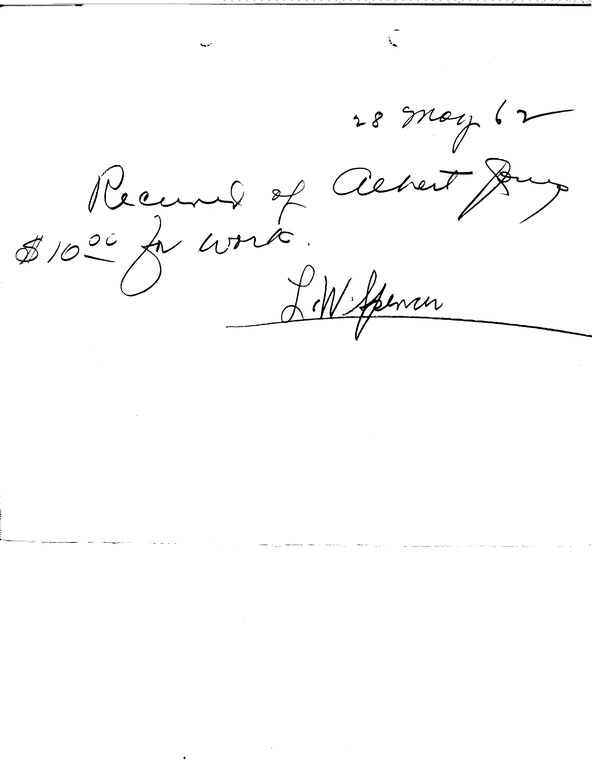 28 May 62
Received of Albert
$10.00 for work.
L.W. Spencer